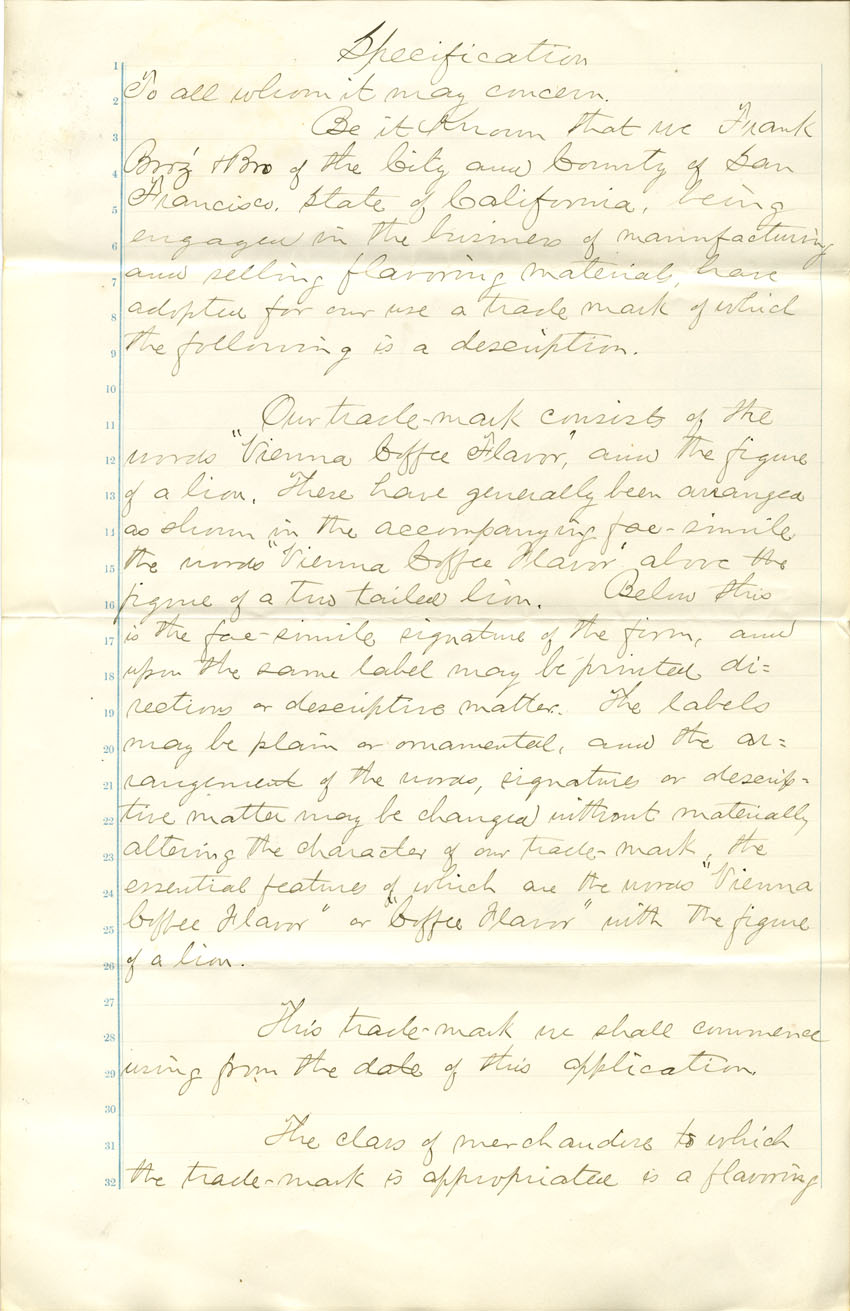 Specification
1
To all whom it may concern.
2
Be it Known that we Frank
3
Broz & Bro of the City and County of San
4
Francisco. State of California, being
5
engaged in the business of mannfacturing
6
and selling flavoring material, have
7
adopted for our use a trade mark of which
8
the following is a description.
9
10
Our trade-mark consists of the
11
words "Vienna Coffee Flavor", and the figure
12
of a lion. These have generally been arranged
13
as shown in the accompanying fac-simile
14
the words "Vienna Coffee Flavor" above the
15
figure of a two tailed lion. Below this
16
is the fac-simile signature of the firm, and
17
upon the same label may be printed di=
18
rections or descriptive matter. The labels
19
may be plain or ornamental, and the ar=
20
rangement of the words, signatures or descrip=
21
tive matter may be changed without materially
22
altering the character of our trade-mark, the
23
essential features of which are the words "Vienna
24
Coffee Flavor" or "Coffee Flavor" with the figure
25
of a lion.
26
27
This trade-mark we shall commence
28
using from the date of this application.
29
30
The class of merchandise to which
31
the trade-mark is appropriated is a flavoring
32